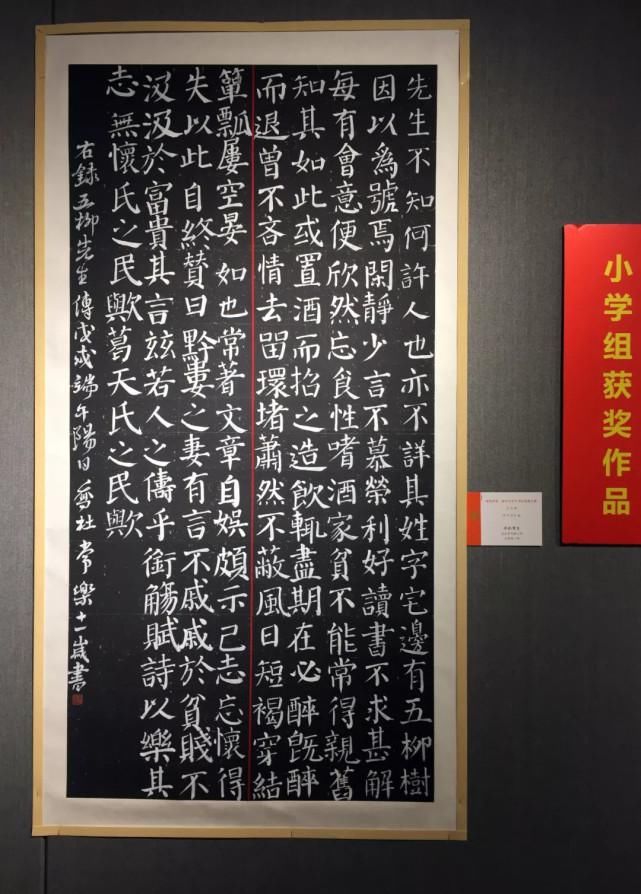 先生不知何許人也亦不詳其姓字宅邊有五柳樹
因以爲號焉閑靜少言不慕榮利好讀書不求甚解
每有會意便欣然忘食性嗜酒家貧不能常得親舊
知其如此或置酒而招之造飲輒盡期在必醉既醉
而退曾不吝情去留環堵蕭然不蔽風日短褐穿結
簞瓢屢空晏如也常著文章自娛頗示己志忘懷得
失以此自終贊曰黔婁之妻有言不戚戚於貧賤不
汲汲於富貴其言玆若人之儔乎銜觴賦詩以樂其
志無懷氏之民歟葛天氏之民歟
右錄五柳先生傳戊戌端午陽日常樂十一歲書
小学组获奖作品